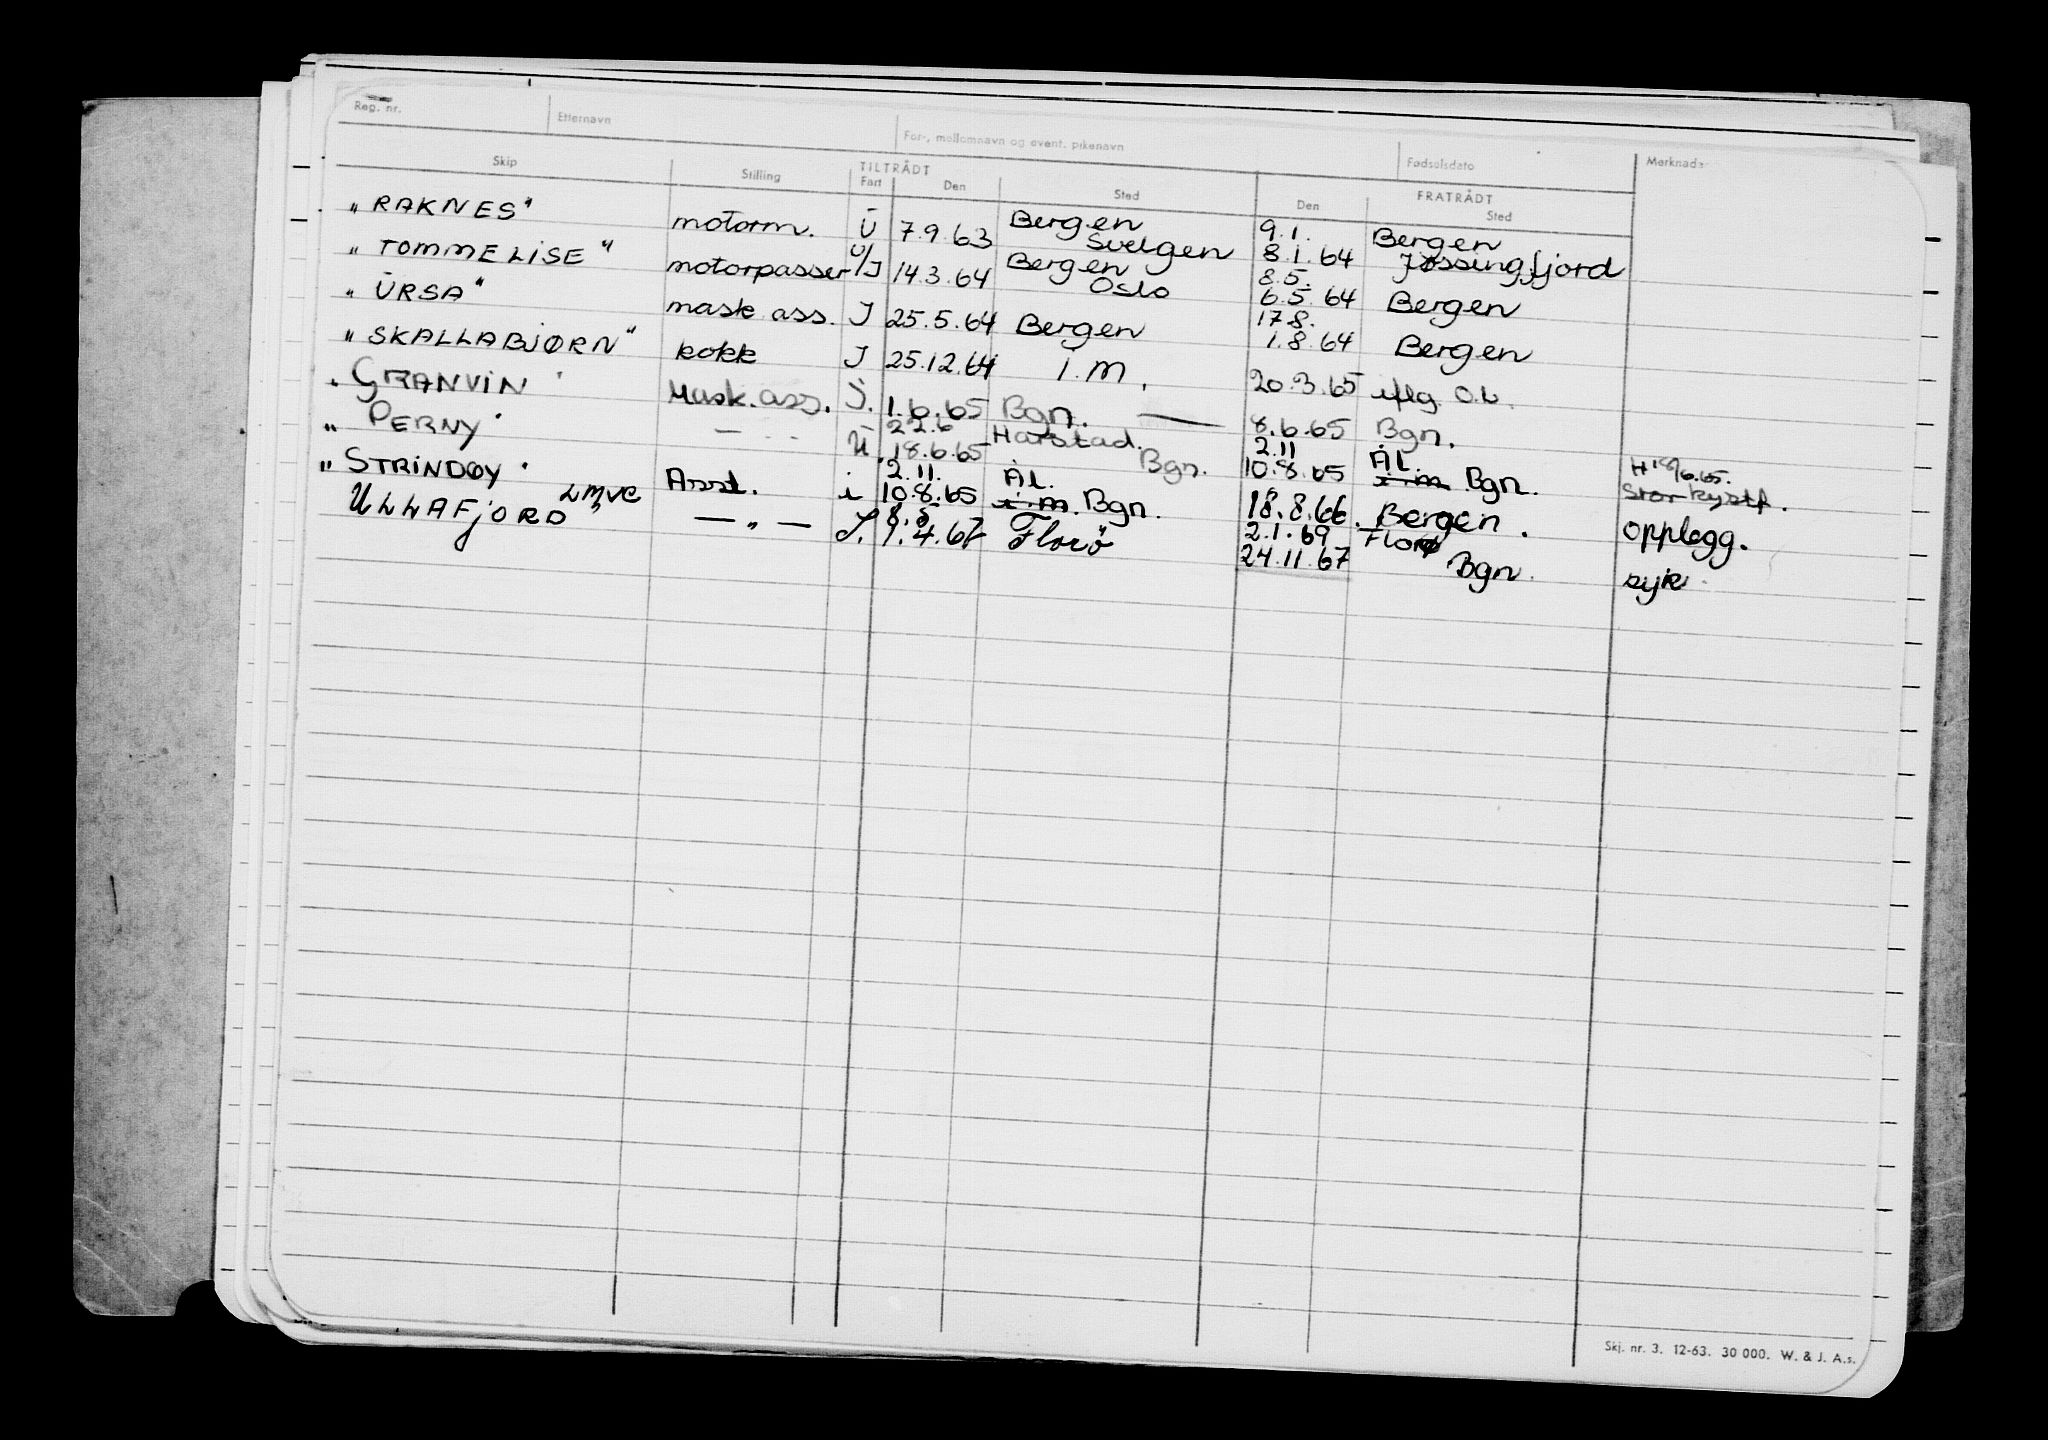 Reg. nr. Etternavn For-, mellomnavn og event. pikenavn Fødselsdato Merknader
Skip Stilling TILTRÅDT FRATRÅDT
Fart Den Sted Den Sted
"RAKNES" motorm. U 7.9.63 Bergen Svelgen 9.1. 8.1.64 Bergen Jøssingfjord
"TOMMELISE" motorpasser U/J 14.3.64 Bergen Oslo 8.5. 6.5.64 Bergen
"URSA" mask ass. J 25.5.64 Bergen 17.8. 1.8.64 Bergen
"SKALLABJØRN" kokk J 25.12.64 I.M. 20.3.65 iflg. O.b.
"GRANVIN" Mask.ass. J. 1.6.65 Bgn. — 8.6.65 Bgn.
"PERNY" — " — U. 22.6 18.6.65 Harstad. Bgn. 2.11 10.8.65 ÅL. i.m. Bgn. 18/6.65. Stor kystf.
"STRINDØY" Asst. i 2.11. 10.8.65 ÅL. i.m. Bgn. 18.8.66. Bergen. opplegg.
ULLAFJORD" LMVC — " — J. 8.5 1.4.67 Florø 2.1.69 24.11.67 Florø Bgn. syk
Skj. nr. 3. 12-63. 30 000. W. & J. A.s.